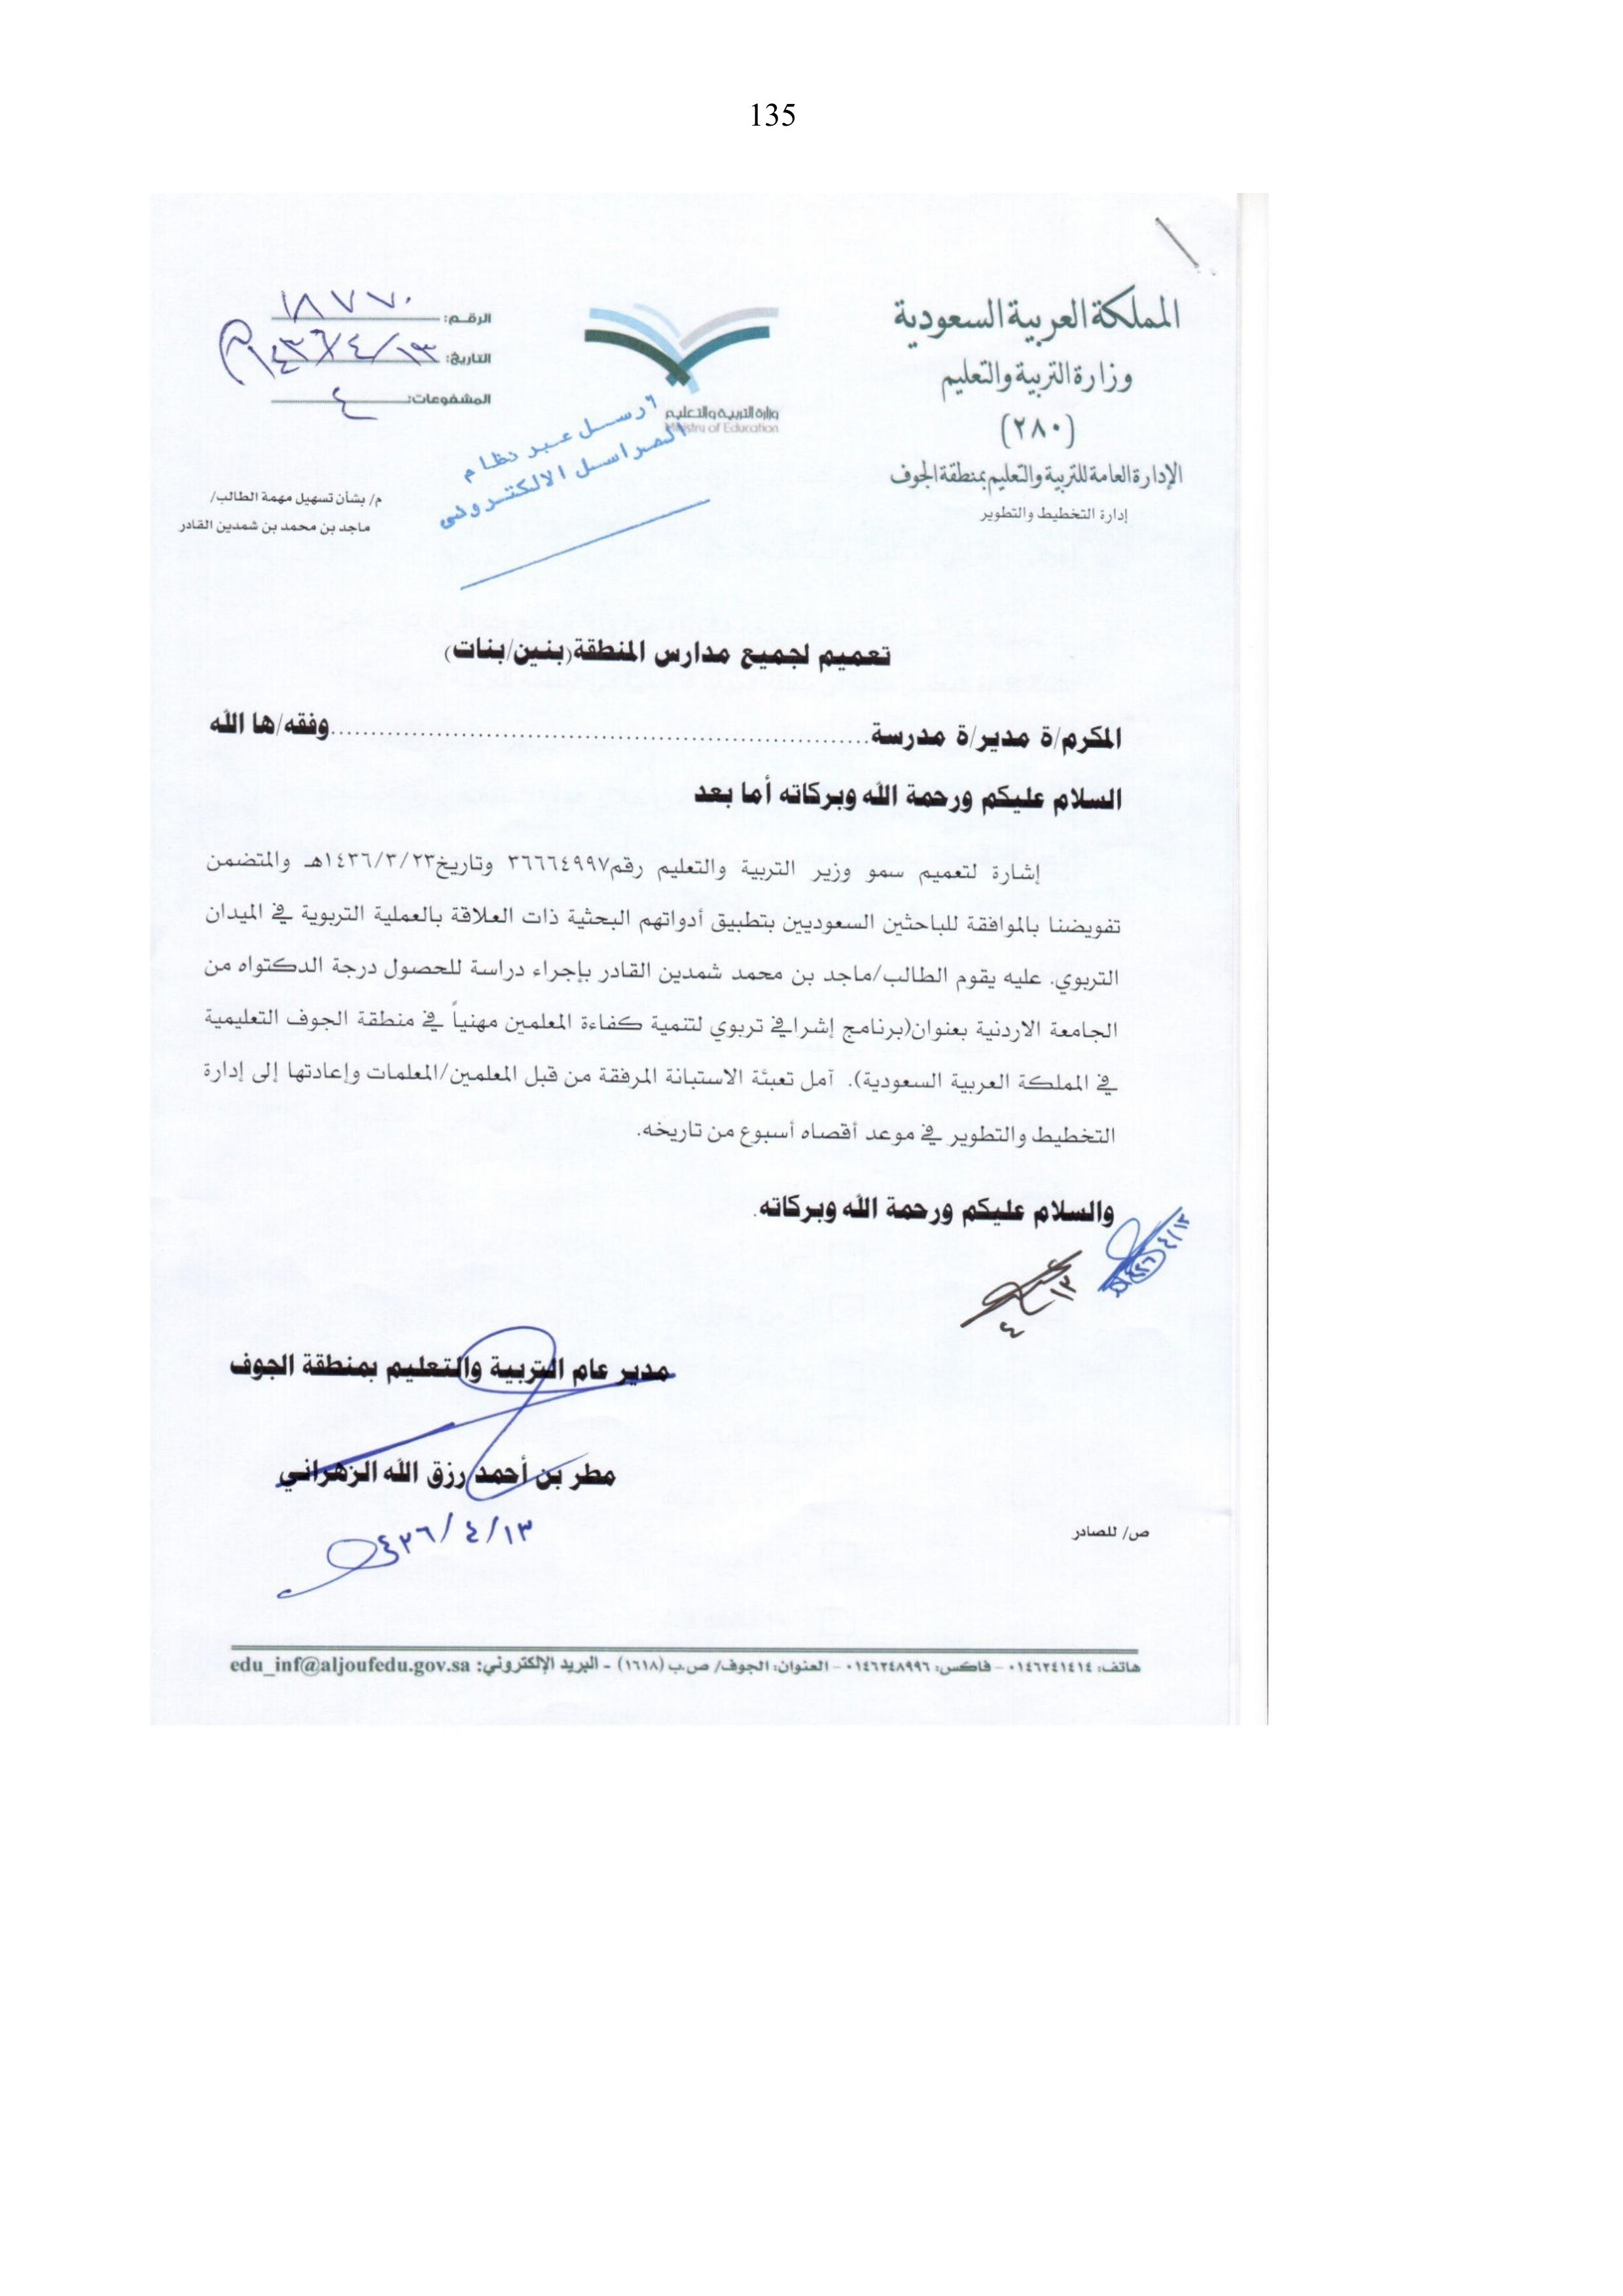 135
المملكة العربية السعودية
وزارة التربية والتعليم
(٢٨٠)
الإدارة العامة للتربية والتعليم بمنطقة الجوف
إدارة التخطيط والتطوير
وزارة التربية والتعليم
Ministry of Education
الرقم: ١٨٧٧٠
التاريخ: ١٤٣٦/٤/١٣
المشفوعات: ٤
ارسل عبر نظام
المراسل الالكتروني
م/ بشأن تسهيل مهمة الطالب/
ماجد بن محمد بن شمدين القادر
تعميم لجميع مدارس المنطقة(بنين/بنات)
المكرم/ة مدير/ة مدرسة..................................................................وفقه/ها الله
السلام عليكم ورحمة الله وبركاته أما بعد
إشارة لتعميم سمو وزير التربية والتعليم رقم٣٦٦٦٤٩٩٧ وتاريخ١٤٣٦/٣/٢٣هـ والمتضمن
تفويضنا بالموافقة للباحثين السعوديين بتطبيق أدواتهم البحثية ذات العلاقة بالعملية التربوية في الميدان
التربوي. عليه يقوم الطالب/ماجد بن محمد شمدين القادر بإجراء دراسة للحصول درجة الدكتواه من
الجامعة الاردنية بعنوان(برنامج إشرافي تربوي لتنمية كفاءة المعلمين مهنياً في منطقة الجوف التعليمية
في المملكة العربية السعودية). آمل تعبئة الاستبانة المرفقة من قبل المعلمين/المعلمات وإعادتها إلى إدارة
التخطيط والتطوير في موعد أقصاه أسبوع من تاريخه.
والسلام عليكم ورحمة الله وبركاته.
٤/١٣
١٣
٤
مدير عام التربية والتعليم بمنطقة الجوف
مطر بن أحمد رزق الله الزهراني
٤٣٦/٤/١٣
ص/ للصادر
هاتف: ٠١٤٦٢٤١٤١٤ - فاكس: ٠١٤٦٢٤٨٩٩٦ - العنوان: الجوف/ ص.ب (١٦١٨) - البريد الإلكتروني: edu_inf@aljoufedu.gov.sa